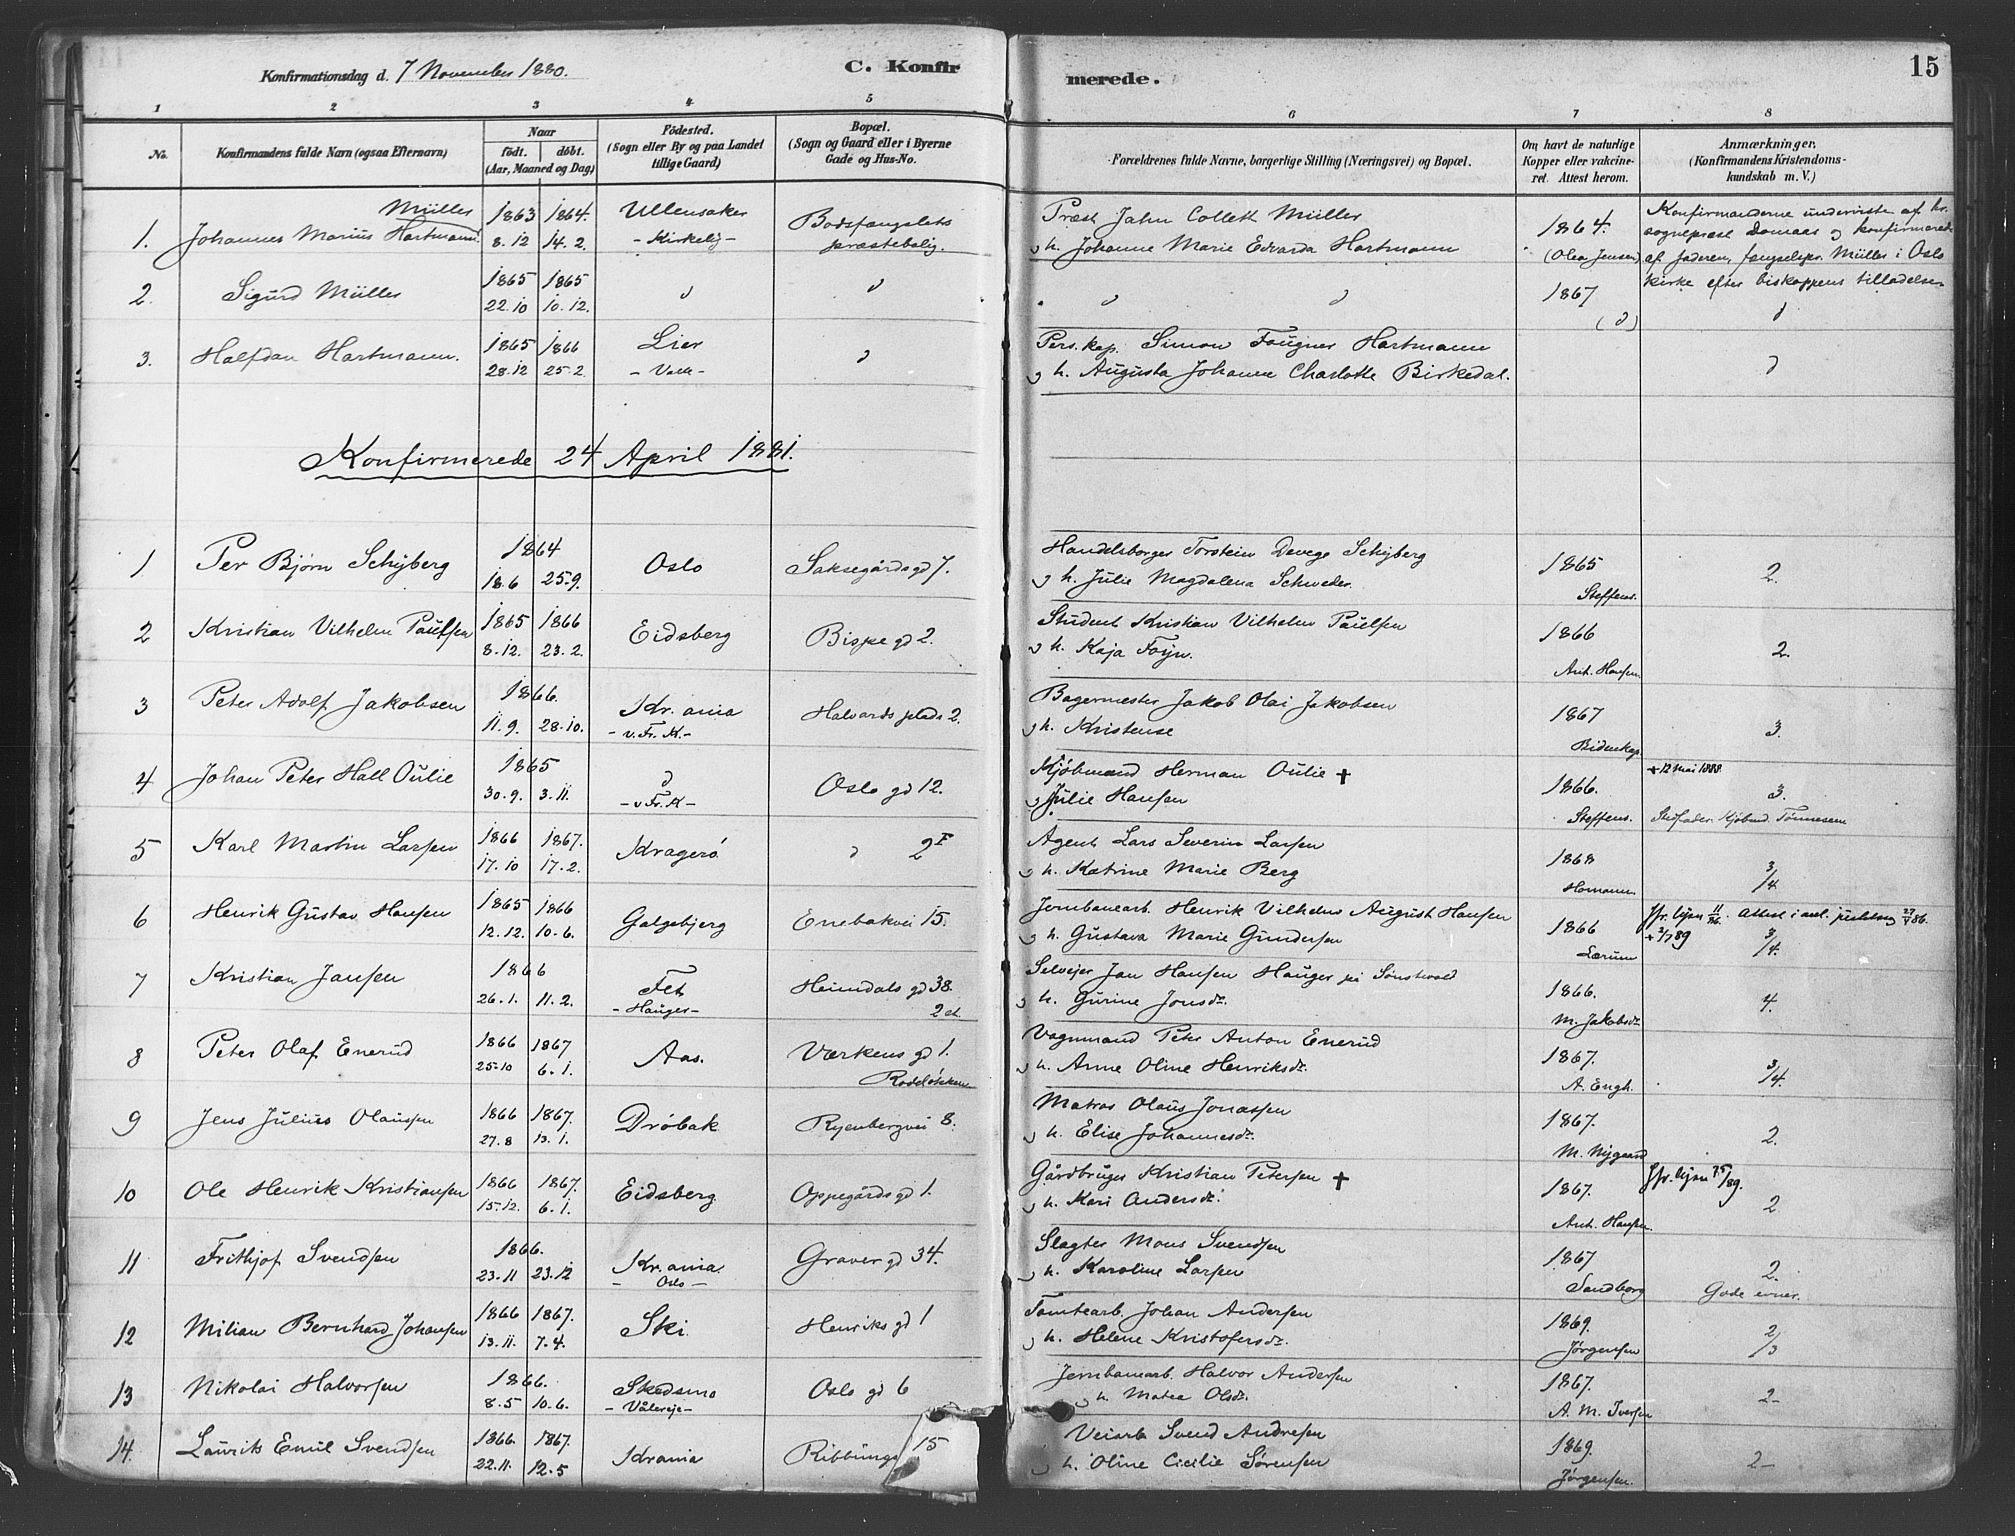 Konfirmationsdag d. 7 November 1880.
C. Konfir
merede.
15
1 2 3 4 5 6 7 8
No. Konfirmandens fulde Navn (ogsaa Efternavn)
Naar
født. døbt.
(Aar, Maaned og Dag)
Födested.
(Sogn eller By og paa Landet
tillige Gaard)
Bopæl.
(Sogn og Gaard eller i Byerne
Gade og Hus-No.
Forældrenes fulde Navne, borgerlige Stilling (Næringsvei) og Bopæl.
Om havt de naturlige
Kopper eller vakcine-
ret. Attest herom.
Anmærkninger,
(Konfirmandens Kristendoms-
kundskab m. V.)
Müller 1863 1864. Ullensaker Bodsfængslets Præst Jahn Collett Müller 1864. Konfirmanderne underviste af hr.
1. Johannes Marius Hartmann 8.12 14.2. - Kirkelig - præstebolig. og h. Johanne Marie Edvarda Hartmann (Olea Jensen) sognepræst Domaas og konfirmerede
af faderen, fængselspr. Müller i Oslo
kirke efter biskoppens tilladelse
2. Sigurd Müller 1865 1865 d d d d 1867
22.10 10.12. (d) d
3. Halfdan Hartmann. 1865 1866 Lier d Pers. kap. Simon Fougner Hartmann
28.12 25.2. og h. Augusta Johanne Charlotte Birkedal. d
Konfirmerede 24 April 1881.
1 Per Bjørn Schyberg 1864 Oslo Saksegårdsgd 7. Handelsborger Torstein Devege Schyberg 1865 2.
18.6 25.9. og h. Julie Magdalena Schweder. Steffens.
2 Kristian Vilhelm Paulsen 1865 1866 Eidsberg Bispegd 2. Student Kristian Vilhelm Paulsen 1866 2.
8.12. 23.2. og h. Kaja Foyn. Ant. Hansen.
3 Peter Adolf Jakobsen 1866. Kr.ania Halvards plads 2. Bagermester Jakob Olai Jakobsen 1867 3.
11.9. 28.10. - v. Fr. K - og h. Kristense Bidenkap
4 Johan Peter Hall Oulie 1865 d Oslo gd 12. Kjøbmand Herman Oulie + 1866. + 12 mai 1888
30.9. 3.11. - v Fr. K - og Julie Hansen Steffens. 3.
Stedfader Kjøbmd Tønnesen
5 Karl Martin Larsen 1866 1867. Kragerø d 2 F Agent Lars Severin Larsen 1868 3/4.
17.10 17.2. og h. Katrine Marie Berg Homann.
6 Henrik Gustav Hansen 1865 1866 Galgebjerg Enebakvei 15. Jernbanearb. Henrik Vilhelm August Hansen 1866
12.12. 10.6. og h. Gustava Marie Gundersen Lærum 3/4.
7 Kristian Jansen 1866 Fet Heimdals gd 38. Selveier Jan Hansen Hauger på 1866. 4.
26.1. 11.2. - Hauger - 2 et. og h. Gurine Jonsdr. M. Jakobsdr.
8 Peter Olaf Enerud 1866 1867 Aas. Værkens gd 1. Vognmand Peter Anton Enerud 1867. 3/4.
25.10 6.1. Rodeløkken og h. Anne Oline Henriksdr. A. Engh.
9 Jens Julius Olaussen 1866 1867. Drøbak Ryenbergvei 8. Matros Olaus Jonassen 1867. 2.
27.8 13.1. og h. Elise Johannesdr. M. Nygaard
10 Ole Henrik Kristiansen 1866 1867. Eidsberg Oppegårdsgd 1. Gårdbruger Kristian Petersen + 1867.
15.12. 6.1. og h. Kari Andersdr. Ant. Hansen. 2
11 Frithjof Svendsen 1866. Kr.ania Graver gd 34. Slagter Mons Svendsen 1867 2.
23.11 23.12 - Oslo - og h. Karoline Larsen Sandborg Gode evner.
12 Milian Bernhard Johansen 1866 1867. Ski Henriks gd 1 Tomtearb. Johan Andersen 1869. 2/3
13.11. 7.4. og h. Helene Kristofersdr. Jørgensen
13 Nikolai Halvorsen 1866. Skedsmo Oslo gd 6 Jernbanearb. Halvor Andersen 1867. 2-
8.5 10.6. - Vålereje - og h. Matea Olsdr. A. M. Iversen
14. Laurits Emil Svendsen 1866 1867. Krania Ribbungs 15 Veiarb Svend Andresen 1869. 2-
22.11. 12.5 og h. Oline Cicilie Sørensen Jørgensen.